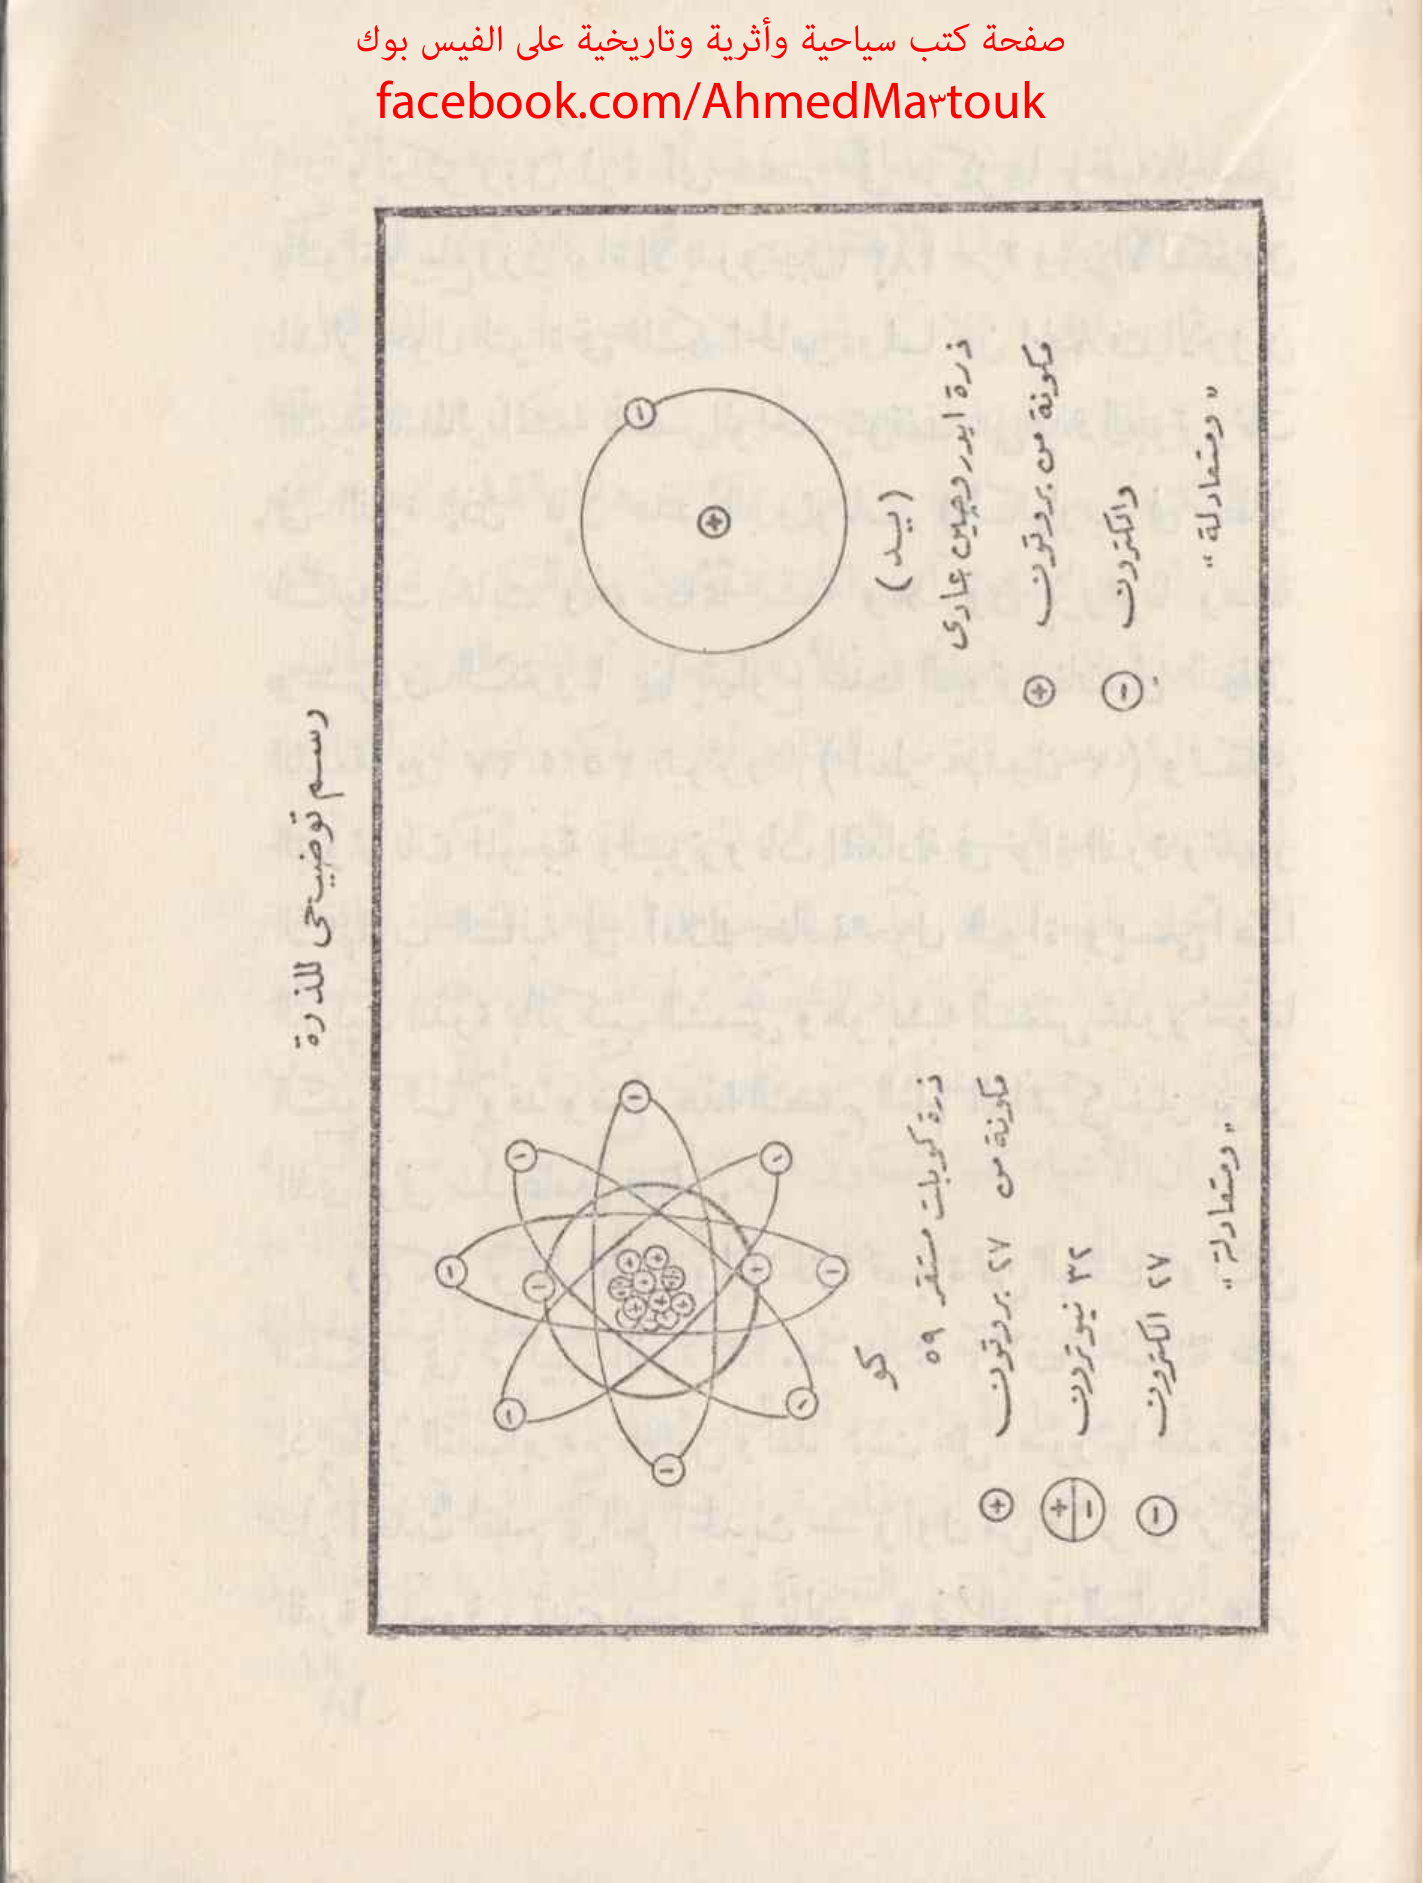 صفحة كتب سياحية وأثرية وتاريخية على الفيس بوك
facebook.com/AhmedMa٣touk
رسم توضيحى للذرة
(يد)
ذرة ايدروجين عادى
⊕ مكونة من بروتون
⊖ والكترون
"ومتعادلة"
كو
ذرة كوبلت مستقر ٥٩
مكونة من
⊕ ٢٧ بروتون
٣٢ نيوترون
⊖ ٢٧ الكترون
"ومتعادلة"